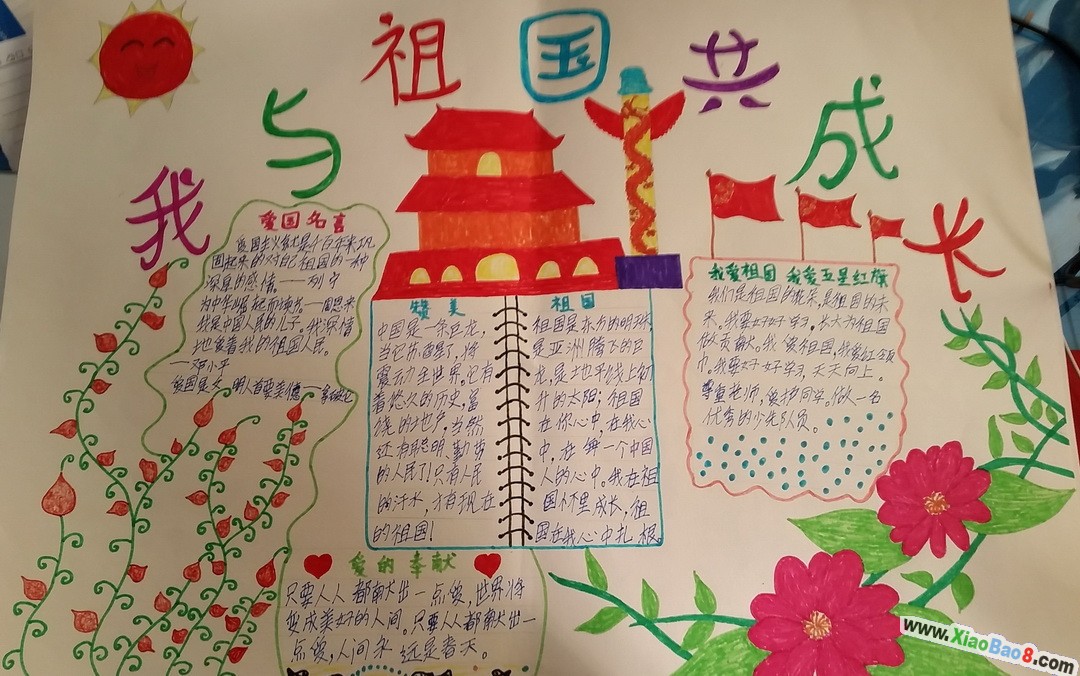 我与祖国共成长
爱国名言
爱国主义就是千百年来巩
固起来的对自己祖国的一种
深厚的感情——列宁
为中华崛起而读书——周恩来
我是中国人民的儿子。我深情
地爱着我的祖国人民。
邓小平
爱国是文明人首要美德
赞美
中国是一条巨龙，
当它苏醒了，将
震动全世界，它有
着悠久的历史，富
饶的地产，当然
还有聪明、勤劳
的人民了！只有人民
的汗水，才有现在
的祖国！
祖国
祖国是东方的明珠
是亚洲腾飞的巨
龙，是地平线上初
升的太阳；祖国
在你心中，在我心
中，在每一个中国
人的心中。我在祖
国怀里成长，祖
国在我心中扎根。
我爱祖国 我爱五星红旗
我们是祖国的花朵，是祖国的未
来。我要好好学习，长大为祖国
做贡献。我爱祖国，我爱红领
巾。我要好好学习，天天向上。
尊重老师，爱护同学。做一名
优秀的少先队员。
爱的奉献
只要人人都献出一点爱，世界将
变成美好的人间。只要人人都献出一
点爱，人间永远是春天。
www.XiaoBao8.com